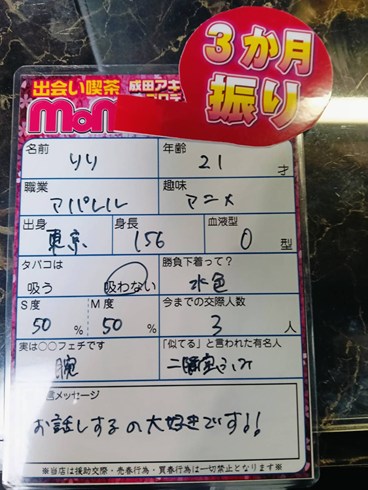 3か月
振り
出会い喫茶
mon
成田アキ
名前 りり 年齢 21 才
職業 アパレル 趣味 アニメ
出身 東京 身長 156 血液型 O 型
タバコは 勝負下着って?
吸う 吸わない 水色
S度 M度 今までの交際人数
50 % 50 % 3 人
実は○○フェチです 「似てる」と言われた有名人
腕 二階堂ふみ
メッセージ
お話しするの大好きです!!
※当店は援助交際・売春行為・買春行為は一切禁止となります。※